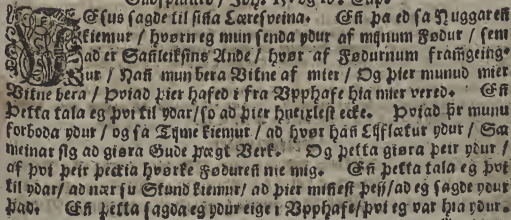 JEsus sagde til sinna Læresveina. En̄ þa ed sa Huggaren̄
kiemur / hvørn eg mun senda ydur af mijnum Fødur / sem
ad er San̄leiksins Ande / hvør af Fødurnum fram̄geing-
ur / Han̄ mun bera Vitne af mier / Og þier munud mier
Vitne bera / Þviad þier hafed i fra Vpphafe hia mier vered. En̄
Þetta tala eg þvi til ydar / so ad þier hneixlest ecke. Þviad þr munu
forboda ydur / og sa Tijme kiemur / ad hvør han̄ Lijflætur ydur / Sa
meinar sig ad giøra Gude þægt Verk. Og þetta giøra þeir ydur /
af þvi þeir þeckia hvørke Føduren̄ nie mig. En̄ þetta tala eg þvi
til ydar / ad nær su Stund kiemur / ad þier min̄est þess / ad eg sagde ydur
þad. En̄ þetta sagda eg ydur eige i Vpphafe / þvi eg var hia ydur.